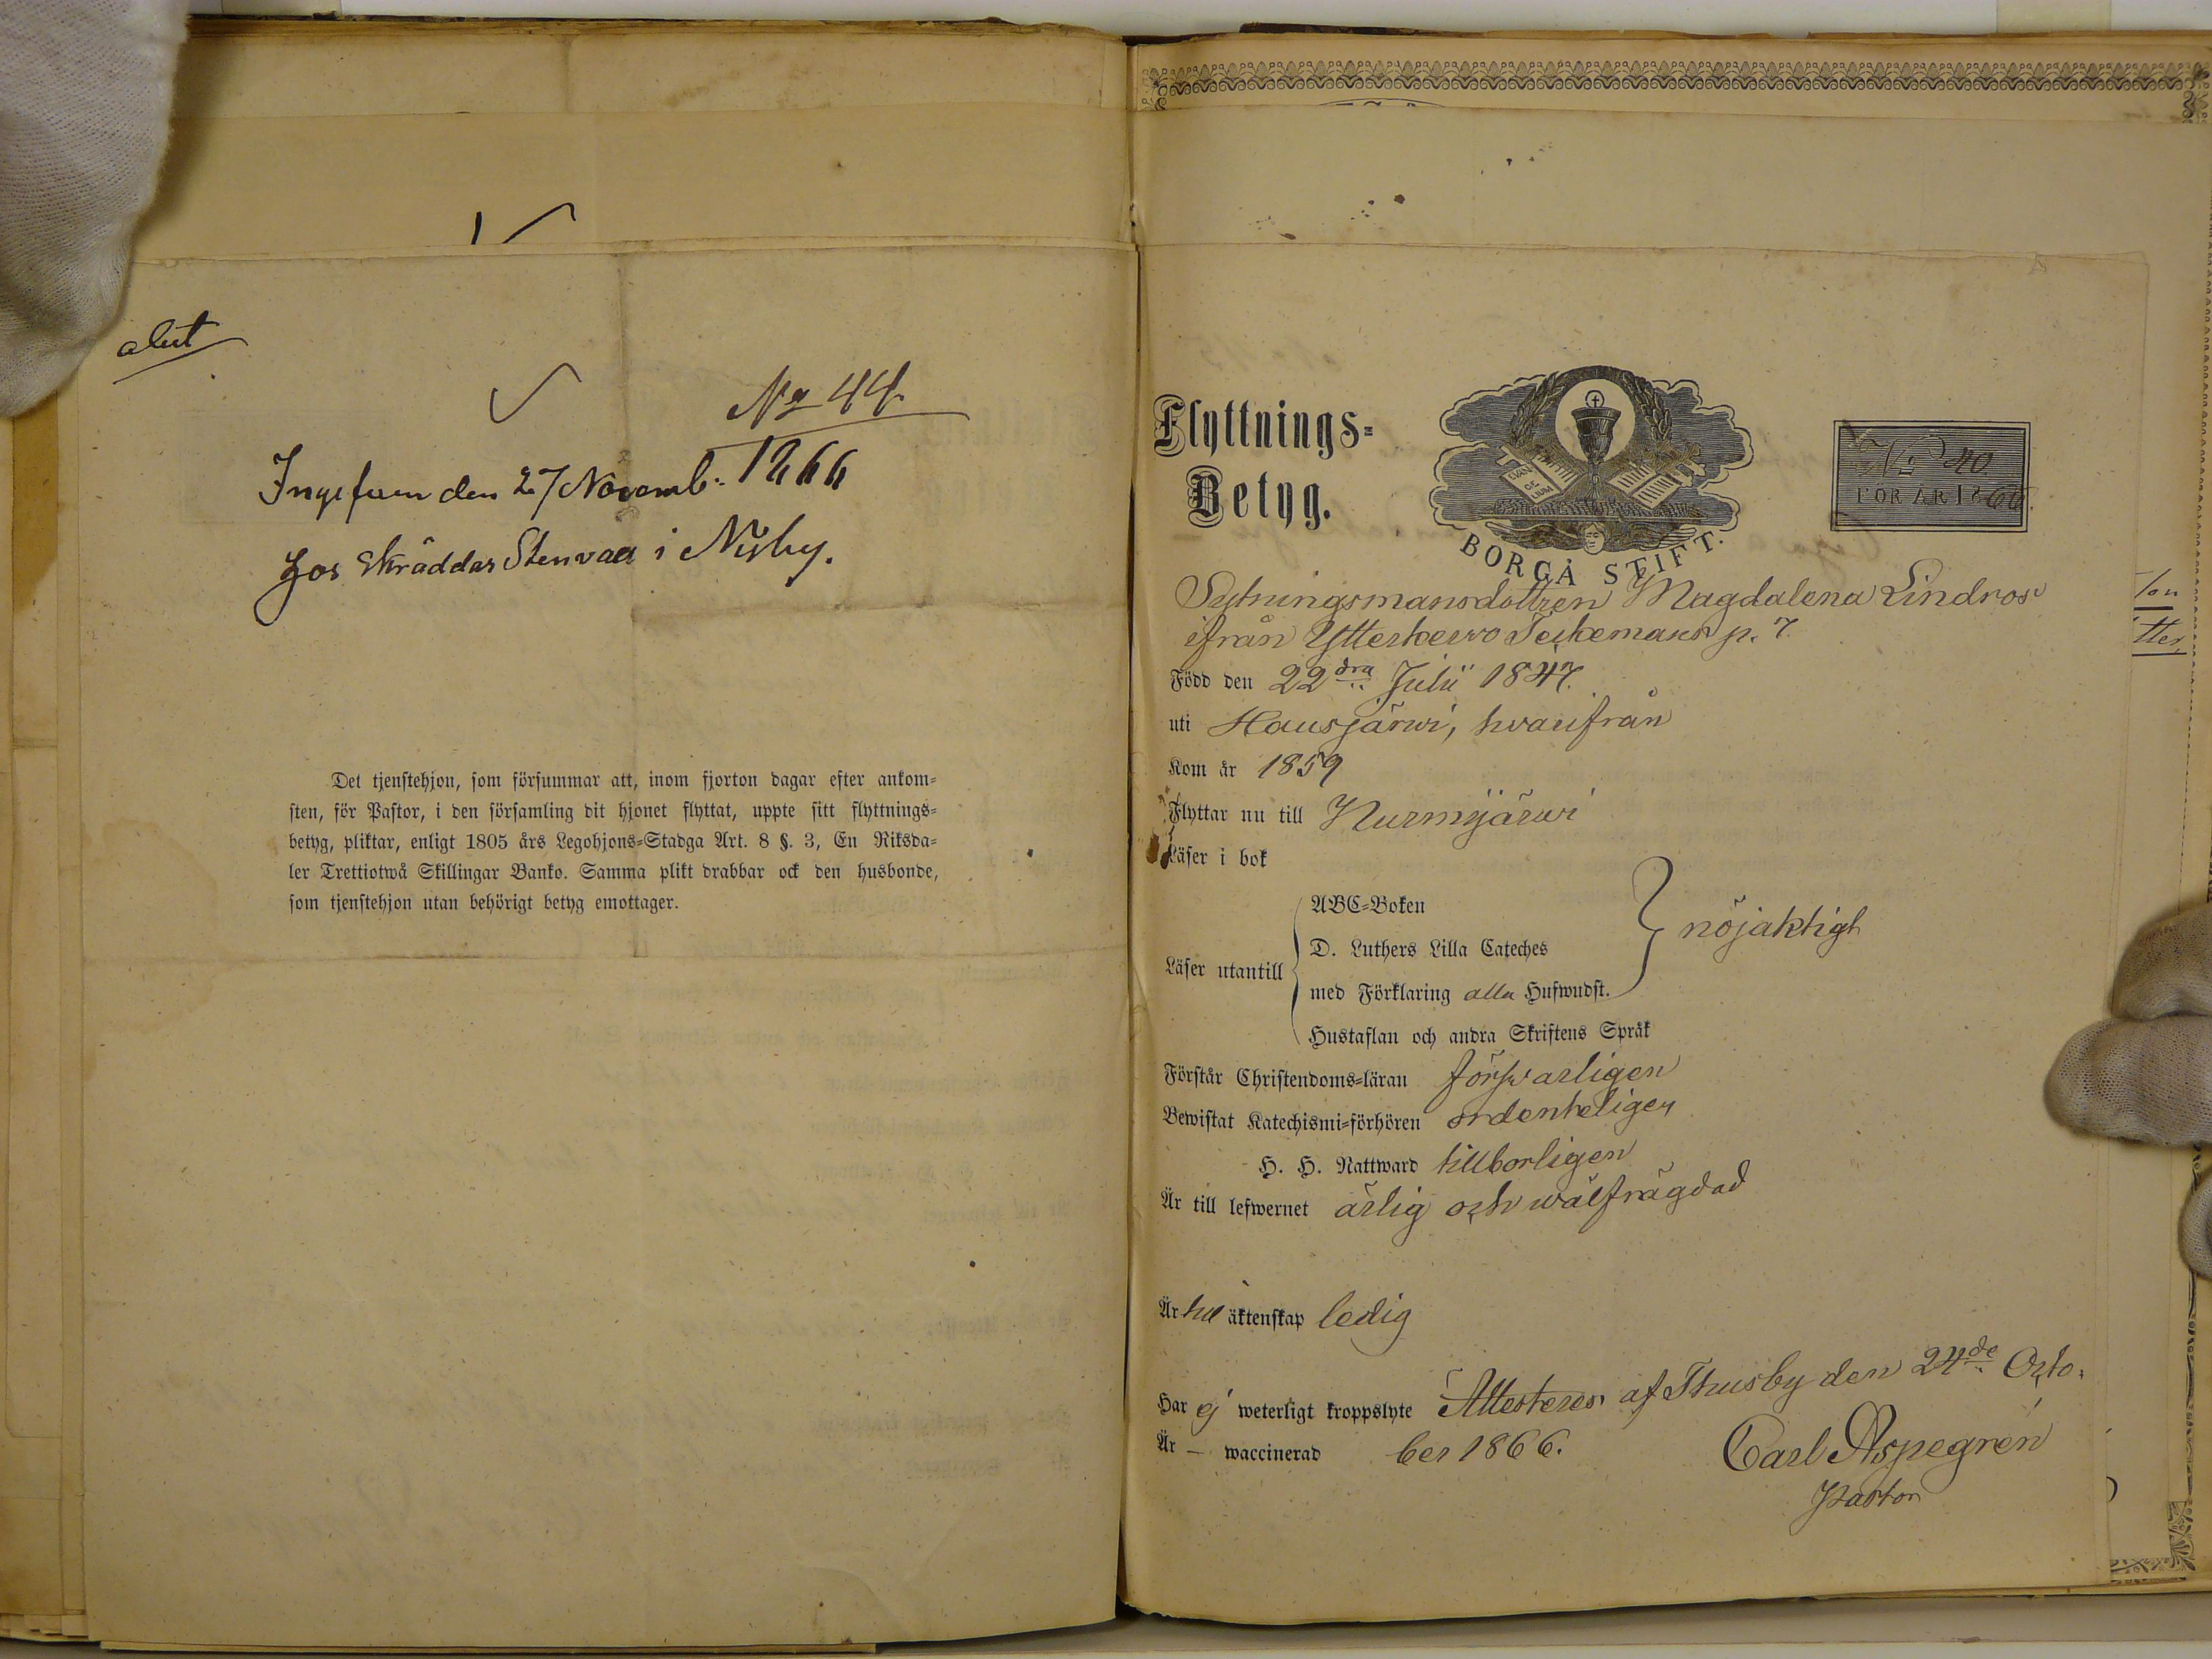 alut
No 44.
den 27 Novemb. 1866
hos Skräddar Stenvall i Nisby.
Det tjenstehjon, som försummar att, inom fjorton dagar efter ankom-
sten, för Pastor, i den församling dit hjonet flyttat, uppte sitt flyttnings-
betyg, pliktar, enligt 1805 års Legohjons-Stadga Art. 8 §. 3, En Riksda-
ler Trettiotwå Skillingar Banko. Samma plikt drabbar ock den husbonde,
som tjenstehjon utan behörigt betyg emottager.
Flyttnings-
Betyg.
EVAN
GE
LIUM
BORGÅ STIFT.
No 40
FÖR ÅR 1866.
Sytningsmansdottren Magdalena Lindros
ifrån Ytterkerwo p. 7.
Född den 22dra Julii 1847.
uti Hausjärwi, hvarifrån
Kom år 1859
Flyttar nu till Nurmijärwi
Läser i bok
ABC-Boken
D. Luthers Lilla Cateches
Läser utantill
med Förklaring alla Hufwudst.
Hustaflan och andra Skriftens Språk
nöjaktigt
Förstår Christendoms-läran förswarligen
Bewistat Katechismi-förhören ordenteligen
H. H. Nattward tillborligen
Är till lefwernet ärlig och wälfrägdad
Är till äktenskap ledig
Har ej weterligt kroppslyte Attesteres af Thusby den 24de Octo-
Är — waccinerad ber 1866.
Carl Aspegren
Pastor